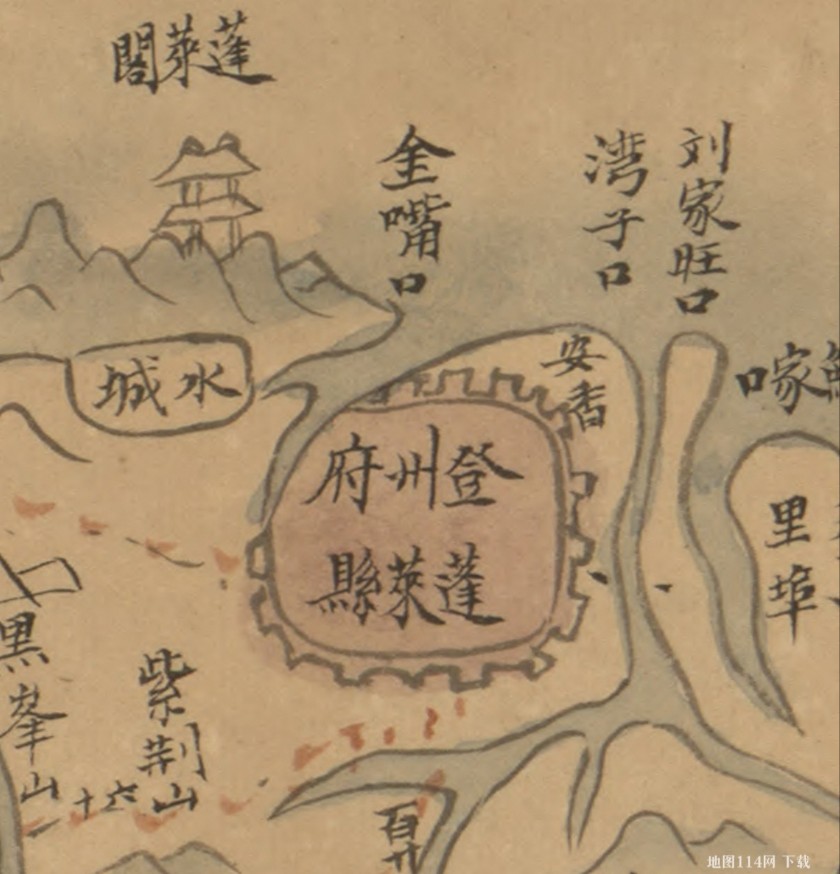 蓬萊閣
金嘴口
湾子口
刘家旺口
水城
安香
登州府
蓬萊縣
里埠
黑峯山
紫荆山
十六
百廿
家口
地图114网 下载